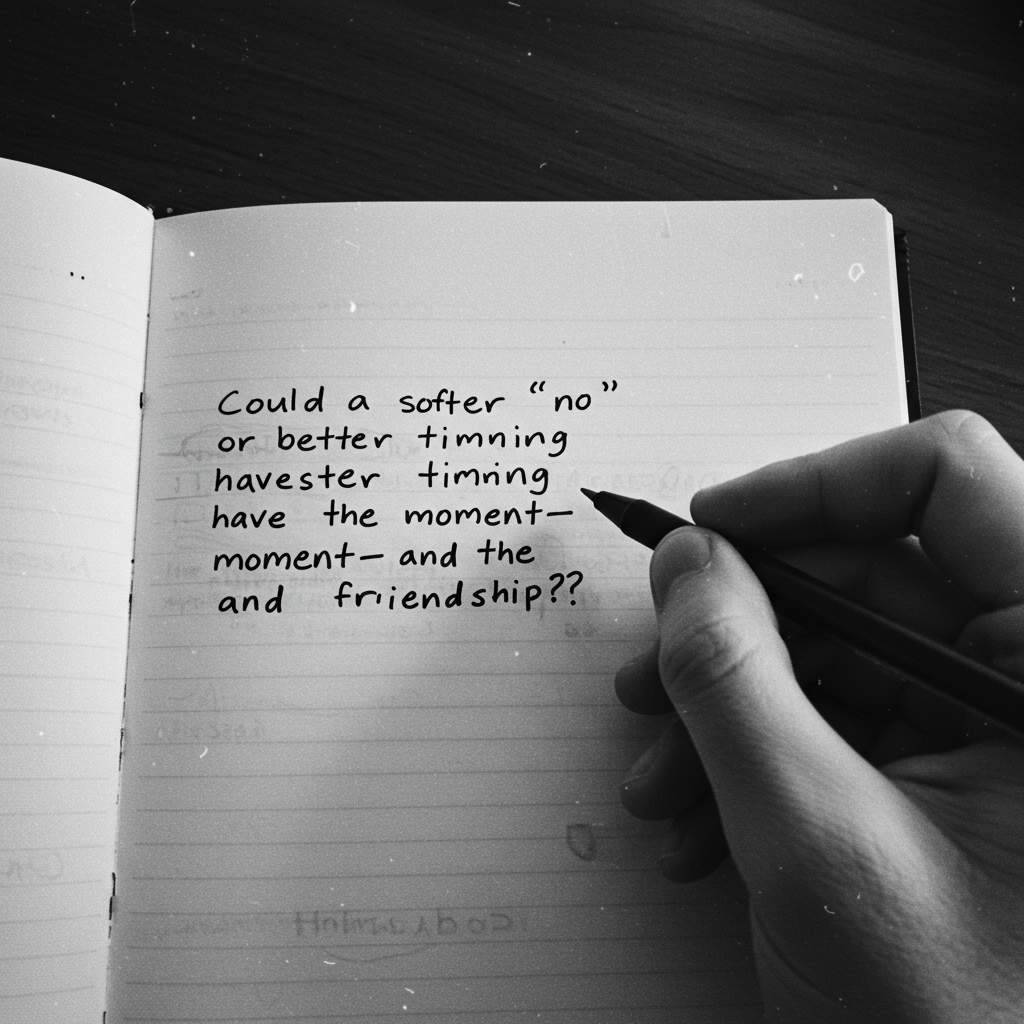 Could a softer “no”
or better timning
havester timring
have the moment—
moment— and the
and friendship??